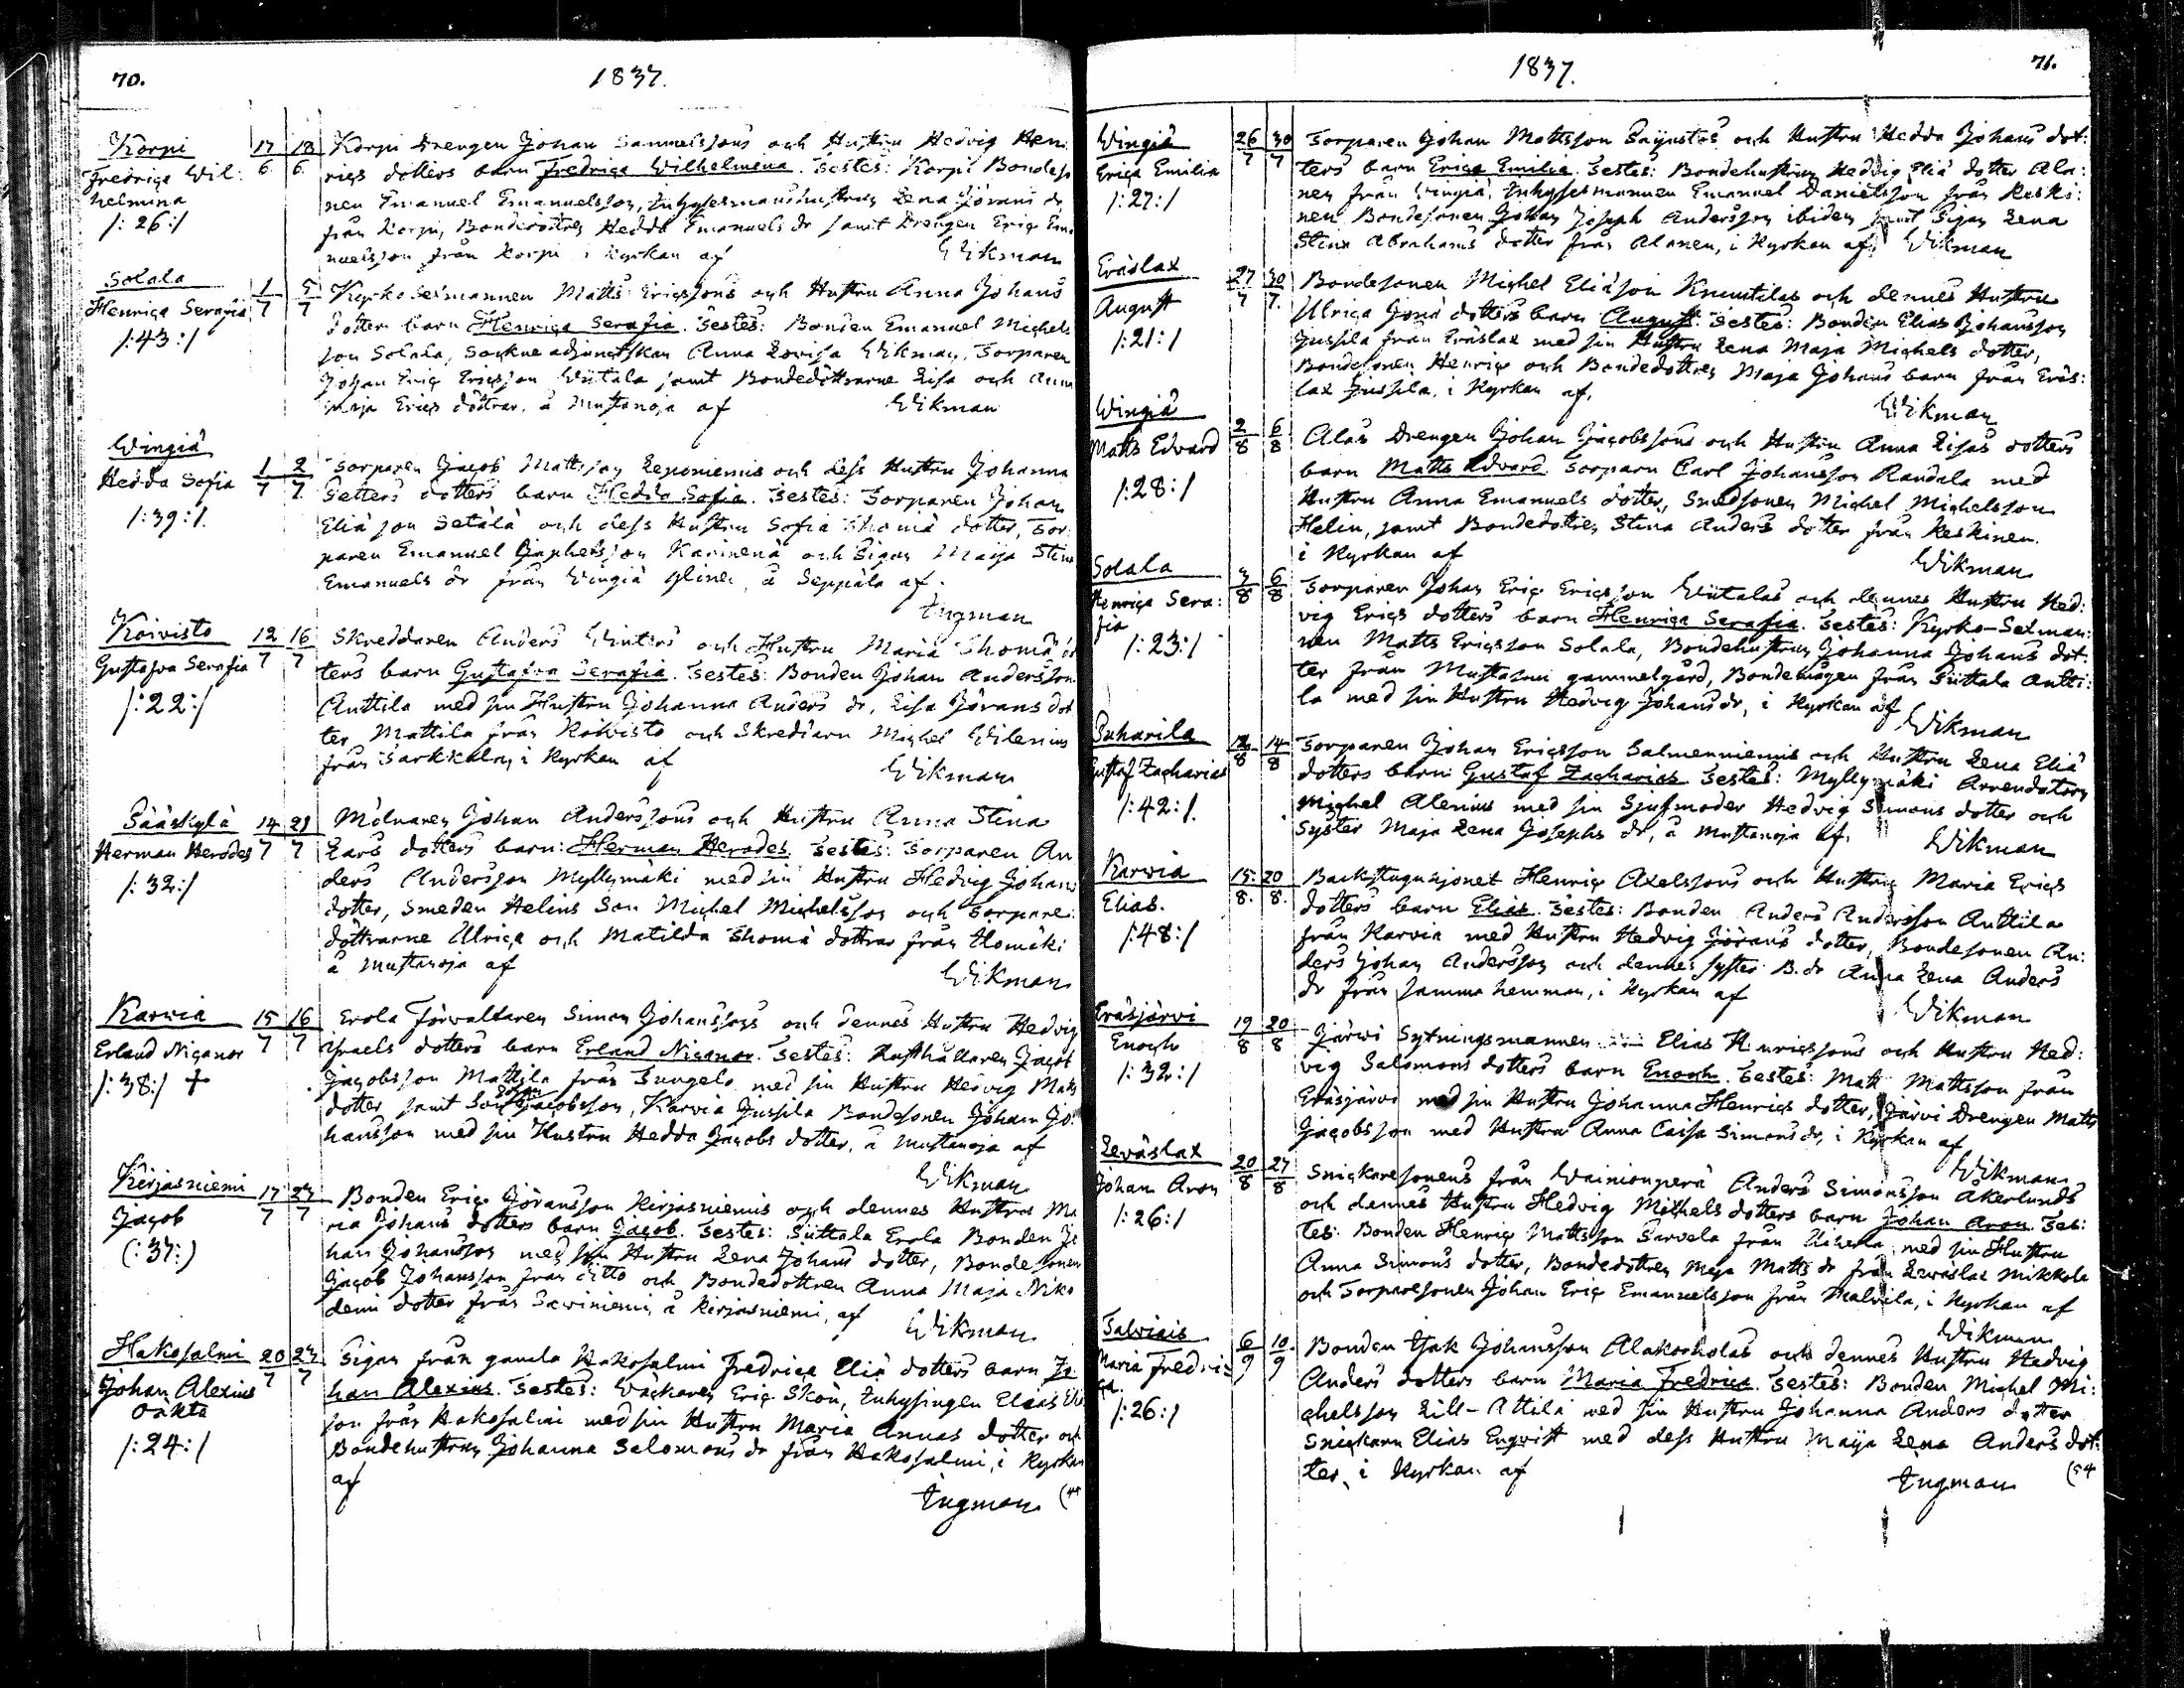 70.
1837.
Korpi 17/6 18/6
Fredrica Wil:
helmina
/: 26:/
Korpi Drengen Johan Samuelssons och Hustru Hedvig Hen
rics dotters barn Fredrica Wilhelmina. Testes: Korpi Bondeso
nen Emanuel Emanuelsson, Inhysesmanshustrun Lena Görans dr
från Korpi, Bondedottren Hedda Emanuels dr samt Drengen Eric Ema
nuelsson från Korpi i Kyrkan af Wikman
Solala 1/7 5/7
Henrica Serafia
/:43:/
Kyrko Sexmannen Matts Ericssons och Hustru Anna Johans
dotters barn Henrica Serafia. Testes: Bonden Emanuel Michels
son Solala, Sockne adjunctskan Anna Lovisa Wikman, Torparen
Johan Eric Ericsson Wiitala samt Bondedöttrarne Lisa och Anna
Maja Erics döttrar, å Mustanoja af Wikman
Wingiä 1/7 2/7
Hedda Sofia
/:39:/
Torparen Jacob Mattsson Leponiemis och dess Hustru Johanna
Petters dotters barn Hedda Sofia. Testes: Torparen Johan
Eliä son Setälä och dess Hustru Sofia Thomä dotter, Tor
paren Emanuel Japhetsson Karinenä och Pigan Maija Stina
Emanuels dr från Wingiä Yliner, å Seppälä af.
Ingman
Koivisto 12/7 16/7
Gustafva Serafia
/:22:/
Skreddaren Anders Winters och Hustru Maria Thomä dot
ters barn Gustafva Serafia. Testes: Bonden Johan Andersson
Anttila med sin Hustru Johanna Anders dr, Lisa Görans dot
ter Mattila från Koivisto och Skreddarn Michel Wilenius
från Sarkkala, i Kyrkan af Wikman
Sääskylä 14/7 21/7
Herman Herodes
/:32:/
Mölnaren Johan Anderssons och Hustru Anna Stina
Lars dotters barn: Herman Herodes. Testes: Torparen An
ders Andersson Myllymäki med sin Hustru Hedvig Johans
dotter, Smeden Helins Son Michel Michelsson och Torpare
döttrarne Ulrica och Matilda Thomä dottrar från Ilomäki
å Mustanoja af Wikman
Karvia 15/7 16/7
Erland Nicanor
/:38:/ +
Erola Förvaltaren Simon Johanssons och dennes Hustru Hedvig
Israels dotters barn Erland Nicanor. Testes: Rusthållaren Jacob
Jacobsson Mattila från Sungelo med sin Hustru Hedvig Matts
dotter samt Son Jacobsson, Karvia Jussila Bondesonen Johan Jo:
hansson med sin Hustru Hedda Jacobs dotter, å Mustanoja af
Wikman
Kirjasniemi 17/7 23/7
Jacob
(:37:)
Bonden Eric Göransson Kirjasniemis och dennes Hustru Ma
ria Johans dotters barn Jacob. Testes: Suttala Erola Bonden Jo
han Johansson med sin Hustru Lena Johans dotter, Bondesonen
Jacob Johansson från ditto och Bondedottren Anna Maja Niko
demi dotter från Saviniemi, å Kirjasniemi, af
Wikman
Hakosalmi 20/7 23/7
Johan Alexius
oäkta
/:24:/
Pigan från gamla Hakosalmi Fredrica Eliä dotters barn Jo
han Alexius. Testes: Väckaren Eric Skön, Inhysingen Elias Eliä
son från Hakosalmi med sin Hustru Maria Annas dotter och
Bondehustrun Johanna Salomons dr från Hakosalmi, i Kyrkan
af
Ingman (44
1837.
71.
Wingiä 26/7 30/7
Erica Emilia
/:27:/
Torparen Johan Mattsson Paijustos och Hustru Hedda Johans dot:
ters barn Erica Emilia. Testes: Bondehustrun Hedvig Eliä dotter Ala:
nen från Wingiä, Inhysesmannen Emanuel Danielsson från Keski:
nen, Bondesonen Johan Joseph Andersson ibidem samt Pigan Lena
Stina Abrahams dotter från Alanen, i Kyrkan af Wikman
Eräslax 27/7 30/7
August
/:21:/
Bondesonen Michel Eliäson Knuutilas och dennes Hustru
Ulrica Jonä dotters barn August. Testes: Bonden Elias Johansson
Jussila från Eräslax med sin Hustru Lena Maja Michels dotter,
Bondesonen Henric och Bondedottren Maja Johans barn från Eräs:
lax Jussila, i Kyrkan af,
Wikman
Wingiä 2/8 6/8
Matts Edvard
/:28:/
Alas Drengen Johan Jacobssons och Hustru Anna Lisas dotters
barn Matts Edvard. Torparn Carl Johansson Randala med
Hustru Anna Emanuels dotter, Smedsonen Michel Michelsson
Helin, samt Bondedottren Stina Anders dotter från Keskinen.
i Kyrkan af Wikman
Solala 3/8 6/8
Henrica Sera:
fia
/:23:/
Torparen Johan Eric Ericsson Wiitalas och dennes Hustru Hed:
vig Erics dotters barn Henrica Serafia. Testes: Kyrko-Sexman:
nen Matts Ericsson Solala, Bondehustrun Johanna Johans dot:
ter från Mustajoni gammelgård, Bondemågen från Suttala Antti:
la med sin Hustru Hedvig Johans dr, i Kyrkan af
Wikman
Suharila 12/8 14/8
Gustaf Zacharias
/:42:/
Torparen Johan Ericsson Salmenniemis och Hustru Lena Eliä
dotters barn: Gustaf Zacharias. Testes: Myllymäki Arrendatorn
Michel Alenius med sin Sjufmoder Hedvig Simons dotter och
Syster Maja Lena Josephs dr, å Mustanoja af. Wikman
Karvia 15/8 20/8
Elias.
/:48:/
Backstuguhjonet Henric Axelssons och Hustru Maria Erics
dotters barn Elias. Testes: Bonden Anders Andersson Anttila
från Karvia med Hustru Hedvig Görans dotter, Bondesonen An:
ders Johan Andersson och dennes syster B.dr Anna Lena Anders
dr från samma hemman, i Kyrkan af
Wikman
Eräsjärvi 19/8 20/8
Enoch
/:32:/
Järvi Sytningsmannen Elias Henricssons och Hustru Hed:
vig Salomons dotters barn Enoch. Testes: Matts Mattsson från
Eräsjärvi med sin Hustru Johanna Henrics dotter, Järvi Drengen Matts
Jacobsson med Hustru Anna Caisa Simons dr, i Kyrkan af
Wikman
Leväslax 20/8 27/8
Johan Aron
/:26:/
Snickaresonens från Wainionperä Anders Simonsson Åkerlunds
och dennes Hustru Hedvig Michels dotters barn Johan Aron. Tes:
tes: Bonden Henric Mattsson Sarvela från med sin Hustru
Anna Simons dotter, Bondedottren Maja Matts dr från Leväslax Mikkola
och Torparesonen Johan Eric Emanuelsson från Malvila, i Kyrkan af
Wikman
Talviais 6/9 10/9
Maria Fredri:
ca
/:26:/
Bonden Isak Johansson Alakorholas och dennes Hustru Hedvig
Anders dotters barn Maria Fredrica. Testes: Bonden Michel Mi:
chelsson Lill-Attila med sin Hustru Johanna Anders dotter
Snickarn Elias Enqvist med dess Hustru Maija Lena Anders dot:
ter, i Kyrkan af
Ingman (54